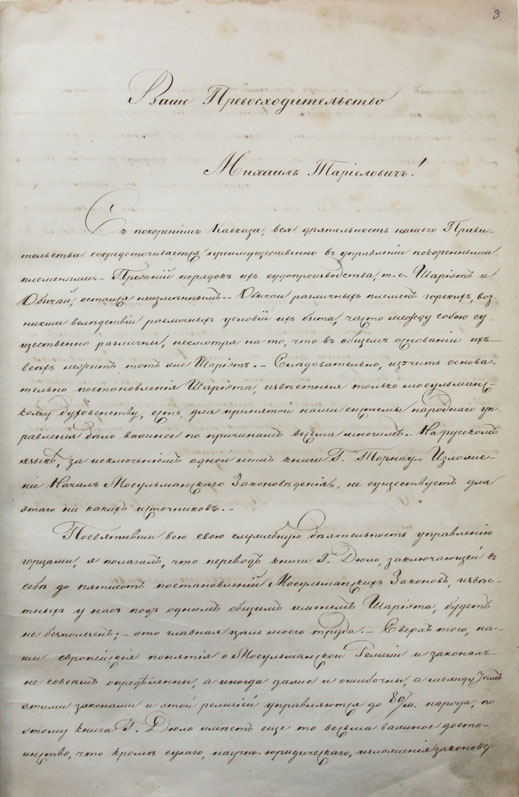 3
Ваше Превосходительство
Михаилъ Таріеловичъ!
Съ покореніемъ Кавказа, вся дѣятельность нашего Прави-
тельства сосредоточивается преимущественно въ управленіи покоренными
племенами. - Прежній порядокъ ихъ судопроизводства, т. е. Шаріатъ и
Обычай, остался неизмѣннымъ. - Обычаи различныхъ племенъ горскихъ, воз-
никши вслѣдствіи различныхъ условій ихъ быта, часто между собою су-
щественно различны, несмотря на то, что въ общемъ основаніи ихъ
всѣхъ лежитъ тотъ же Шаріатъ. - Слѣдовательно, изучить основа-
тельно постановленія Шаріата, извѣстныя только мосульманс-
кому духовенству, есть для принятой нами системы народнаго уп-
равленія дѣло важное по причинамъ весьма многимъ. - На русскомъ
языкѣ, за исключеніемъ одной книги Г. Торнау Изложе-
ніе Началъ Мосульманскаго Законовѣденія, не существуетъ для
этаго ни какихъ источниковъ. -
Посвятивши всю свою служебную дѣятельность управленію
горцами, я полагалъ, что переводъ книги Г. Дюло, заключающей въ
себѣ до пятисотъ постановленій Мосульманскихъ Законовъ, извѣс-
тныхъ у насъ подъ однимъ общимъ именемъ Шаріата, будетъ
не безполезенъ; - это главная цѣль моего труда. - Сверхъ того, на-
ши европейскія понятія о Мосульманской Религіи и законахъ
не совсѣмъ опредѣленны, а иногда даже и ошибочны, а между тѣмъ
этими законами и этой религіей управляются до 80/м. народа, по
этому книга Г. Дюло имѣетъ еще то весьма важное досто-
инство, что кромѣ сухаго, научно-юридическаго, изложенія законовъ